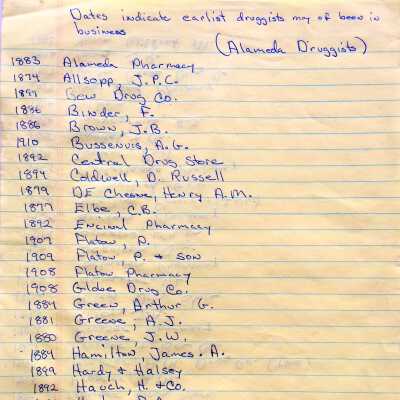 Dates indicate earlist druggists may of been in
business
(Alameda Druggists)
1883 Alameda Pharmacy
1874 Allsopp, J.P.C.
Drug Co.
1886 Binder, F.
1886 Brown, J.B.
1910 Bussenuis, A.G.
1892 Central Drug Store
1894 Coldwell, D. Russell
1879 DE Chesne, Henry A.M.
1877 Elbe, C.B.
1892 Encinal Pharmacy
1907 Flatow, P.
1909 Flatow, P. + SON
1908 Flatow Pharmacy
1908 Globe Drug Co.
1884 Green, Arthur G.
1881 Greene, A.J.
1880 Greene, J.W.
1884 Hamilton, James. A.
1899 Hardy + Halsey
1892 Hauch, H. + Co.